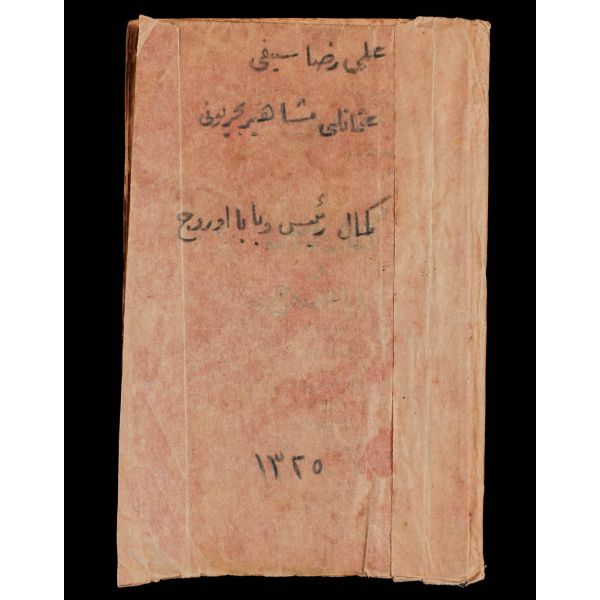 علی رضا سیفی
عثمانلی مشاهیر بحریونی
كمال رئیس و بابا اوروج
١٣٢٥